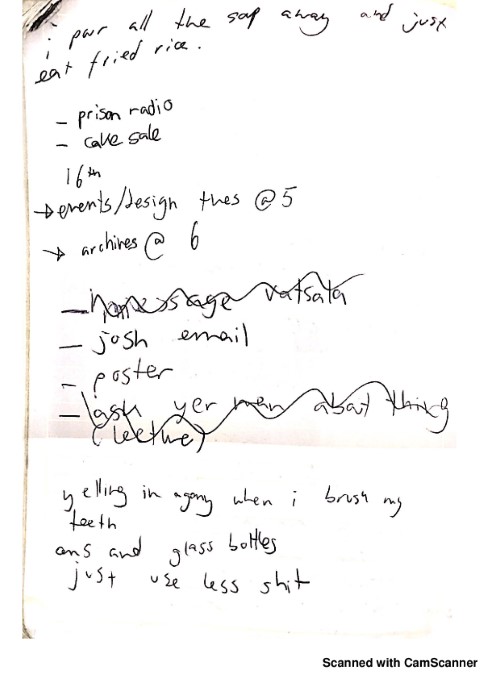 i pour all the soap away and just
eat fried rice.
- prison radio
- cake sale
16th
→ events/design tues @ 5
→ archives @ 6
- josh email
- poster
- ask yer man about thing
yelling in agony when i brush my
teeth
and glass bottles
just use less shit
Scanned with CamScanner